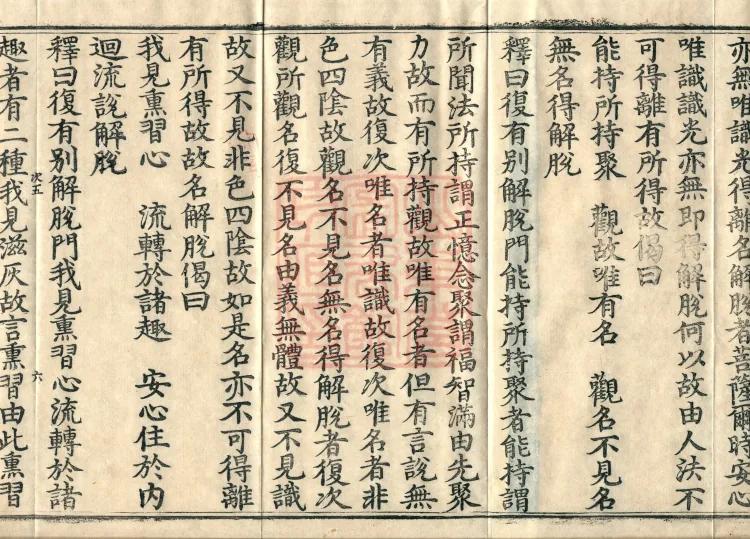 亦無唯識光得離名解脫者菩薩爾時安心
唯識識光亦無即得解脫何以故由人法不
可得離有所得故偈曰
能持所持聚　觀故唯有名　觀名不見名
無名得解脫
釋曰復有別解脫門能持所持聚者能持謂
所聞法所持謂正憶念聚謂福智滿由先聚
力故而有所持觀故唯有名者但有言說無
有義故復次唯名者唯識故復次唯名者非
色四陰故觀名不見名無名得解脫者復次
觀所觀名復不見名由義無體故又不見識
故又不見非色四陰故如是名亦不可得離
有所得故故名解脫偈曰
我見熏習心　流轉於諸趣　安心住於內
迴流說解脫
釋曰復有別解脫門我見熏習心流轉於諸
次五
六
趣者有二種我見滋灰故言熏習由此熏習